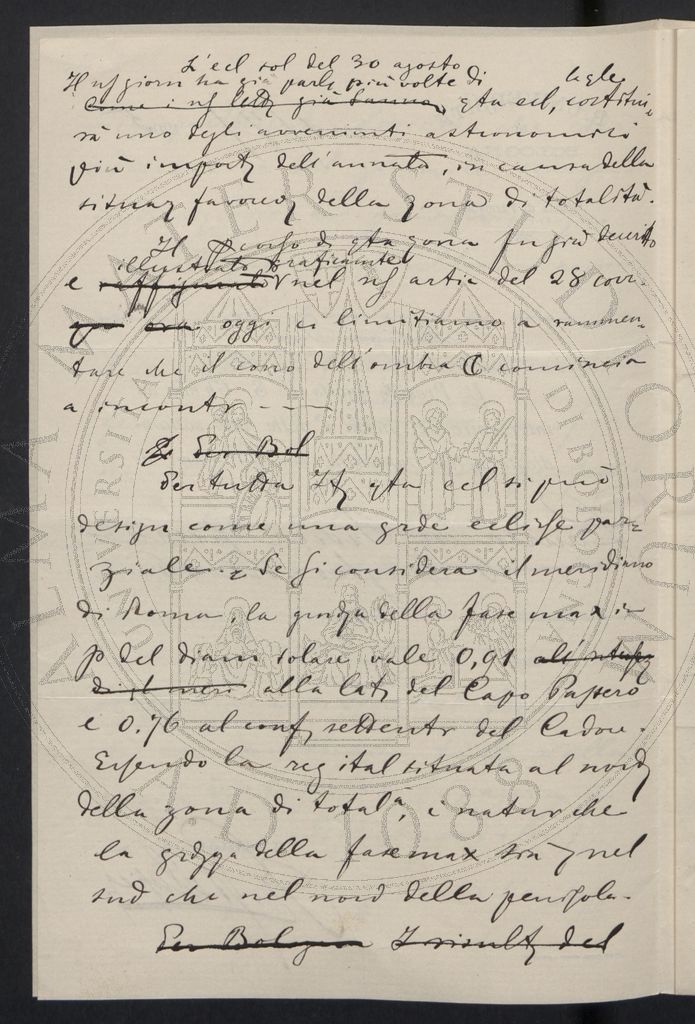 L'ecl sol del 30 agosto
Il ns giorn ha già parl più volte di
come i ns lett già sanno, qta ecl, costitui-
rà uno degli avvenimenti astronomici
più import dell'annata, in causa della
situaz favorev della zona di totalità.
Il percorso di qta zona fu già descritto
illustrato graficamente
e raffigurato nel ns artic del 28 corr.
oggi ci limitiamo a rammen-
tare che il cono dell'ombra ☾ comincia
a incontr - - -
Per Bol
Per tutta It qta ecl si può
design come una grde eclisse par-
ziale. Se si considera il meridiano
di Roma, la grdzza della fase max i-
p del diam solare vale 0,91
di st meri alla lat del Capo Passero
e 0.76 al conf settentr del Cadore.
Essendo la reg ital situata al nord
della zona di total.à, è natur che
la grdzza della fase max sia > nel
sud che nel nord della penisola.
Per Bologna I risult del
ALMA MATER STUDIORUM
UNIVERSITÀ DI BOLOGNA
A.D. 1088